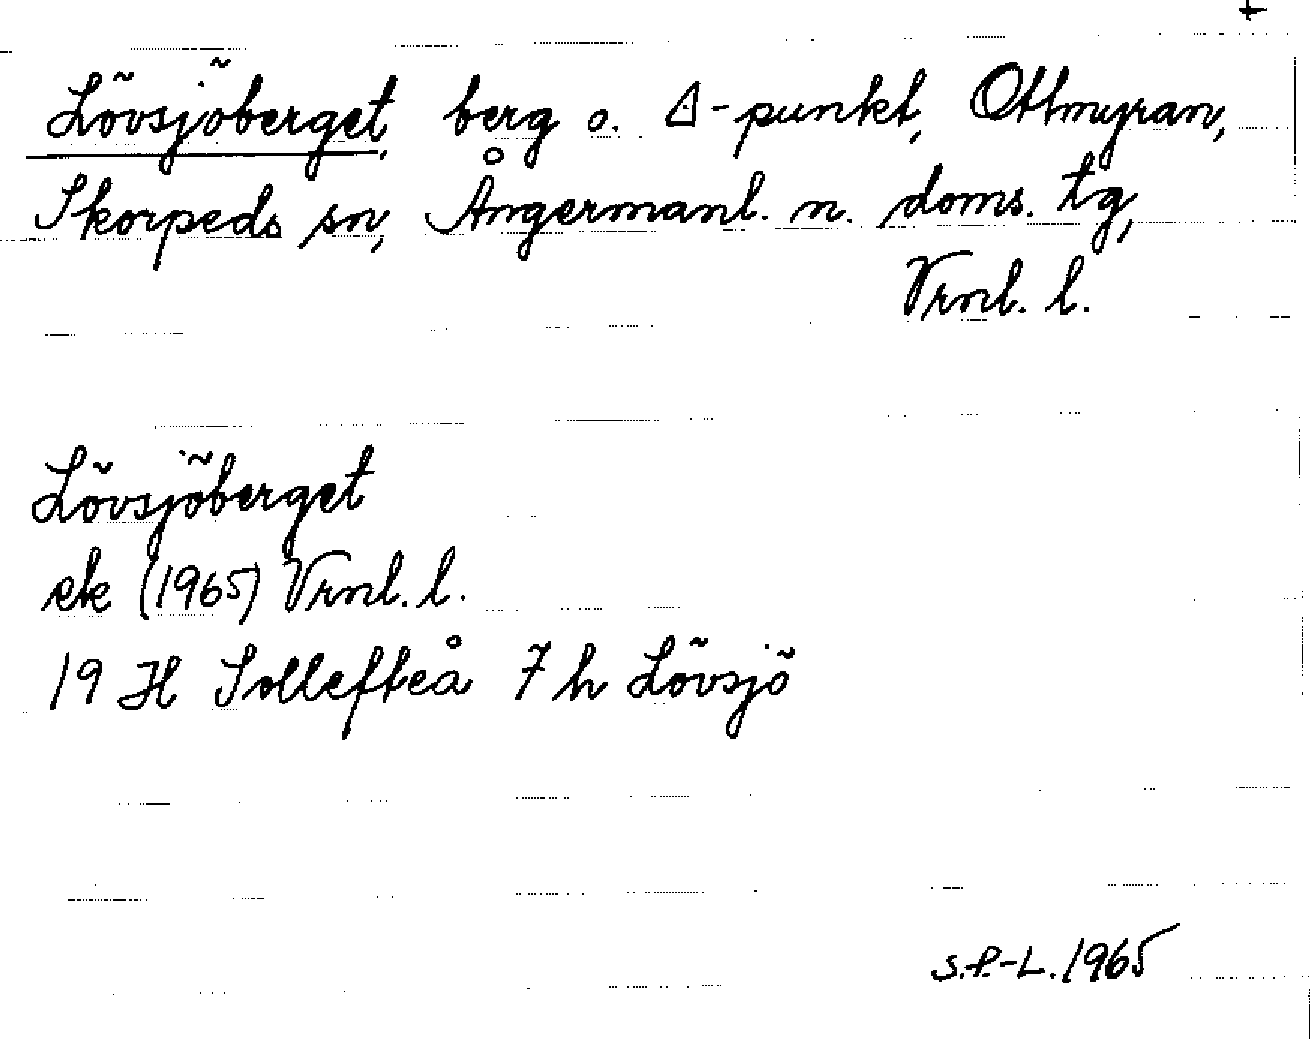 +
Lövsjöberget, berg o. Δ-punkt, Ottmyran,
Skorpeds sn, Ångermanl. n. doms. tg,
Vrnl. l.
Lövsjöberget
ek (1965) Vrnl. l.
19 H Sollefteå 7 h Lövsjö
S.P.-L. 1965